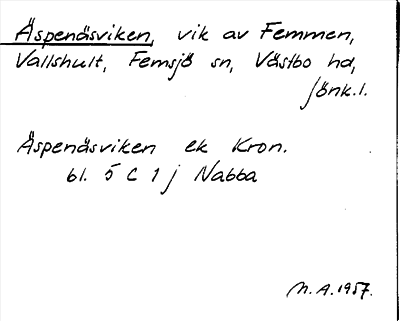 Äspenäsviken, vik av Femmen,
Vallshult, Femsjö sn, Västbo hd,
Jönk.l.
Äspenäsviken ek Kron.
bl. 5 C 1 j Nabba
M.A. 1957.